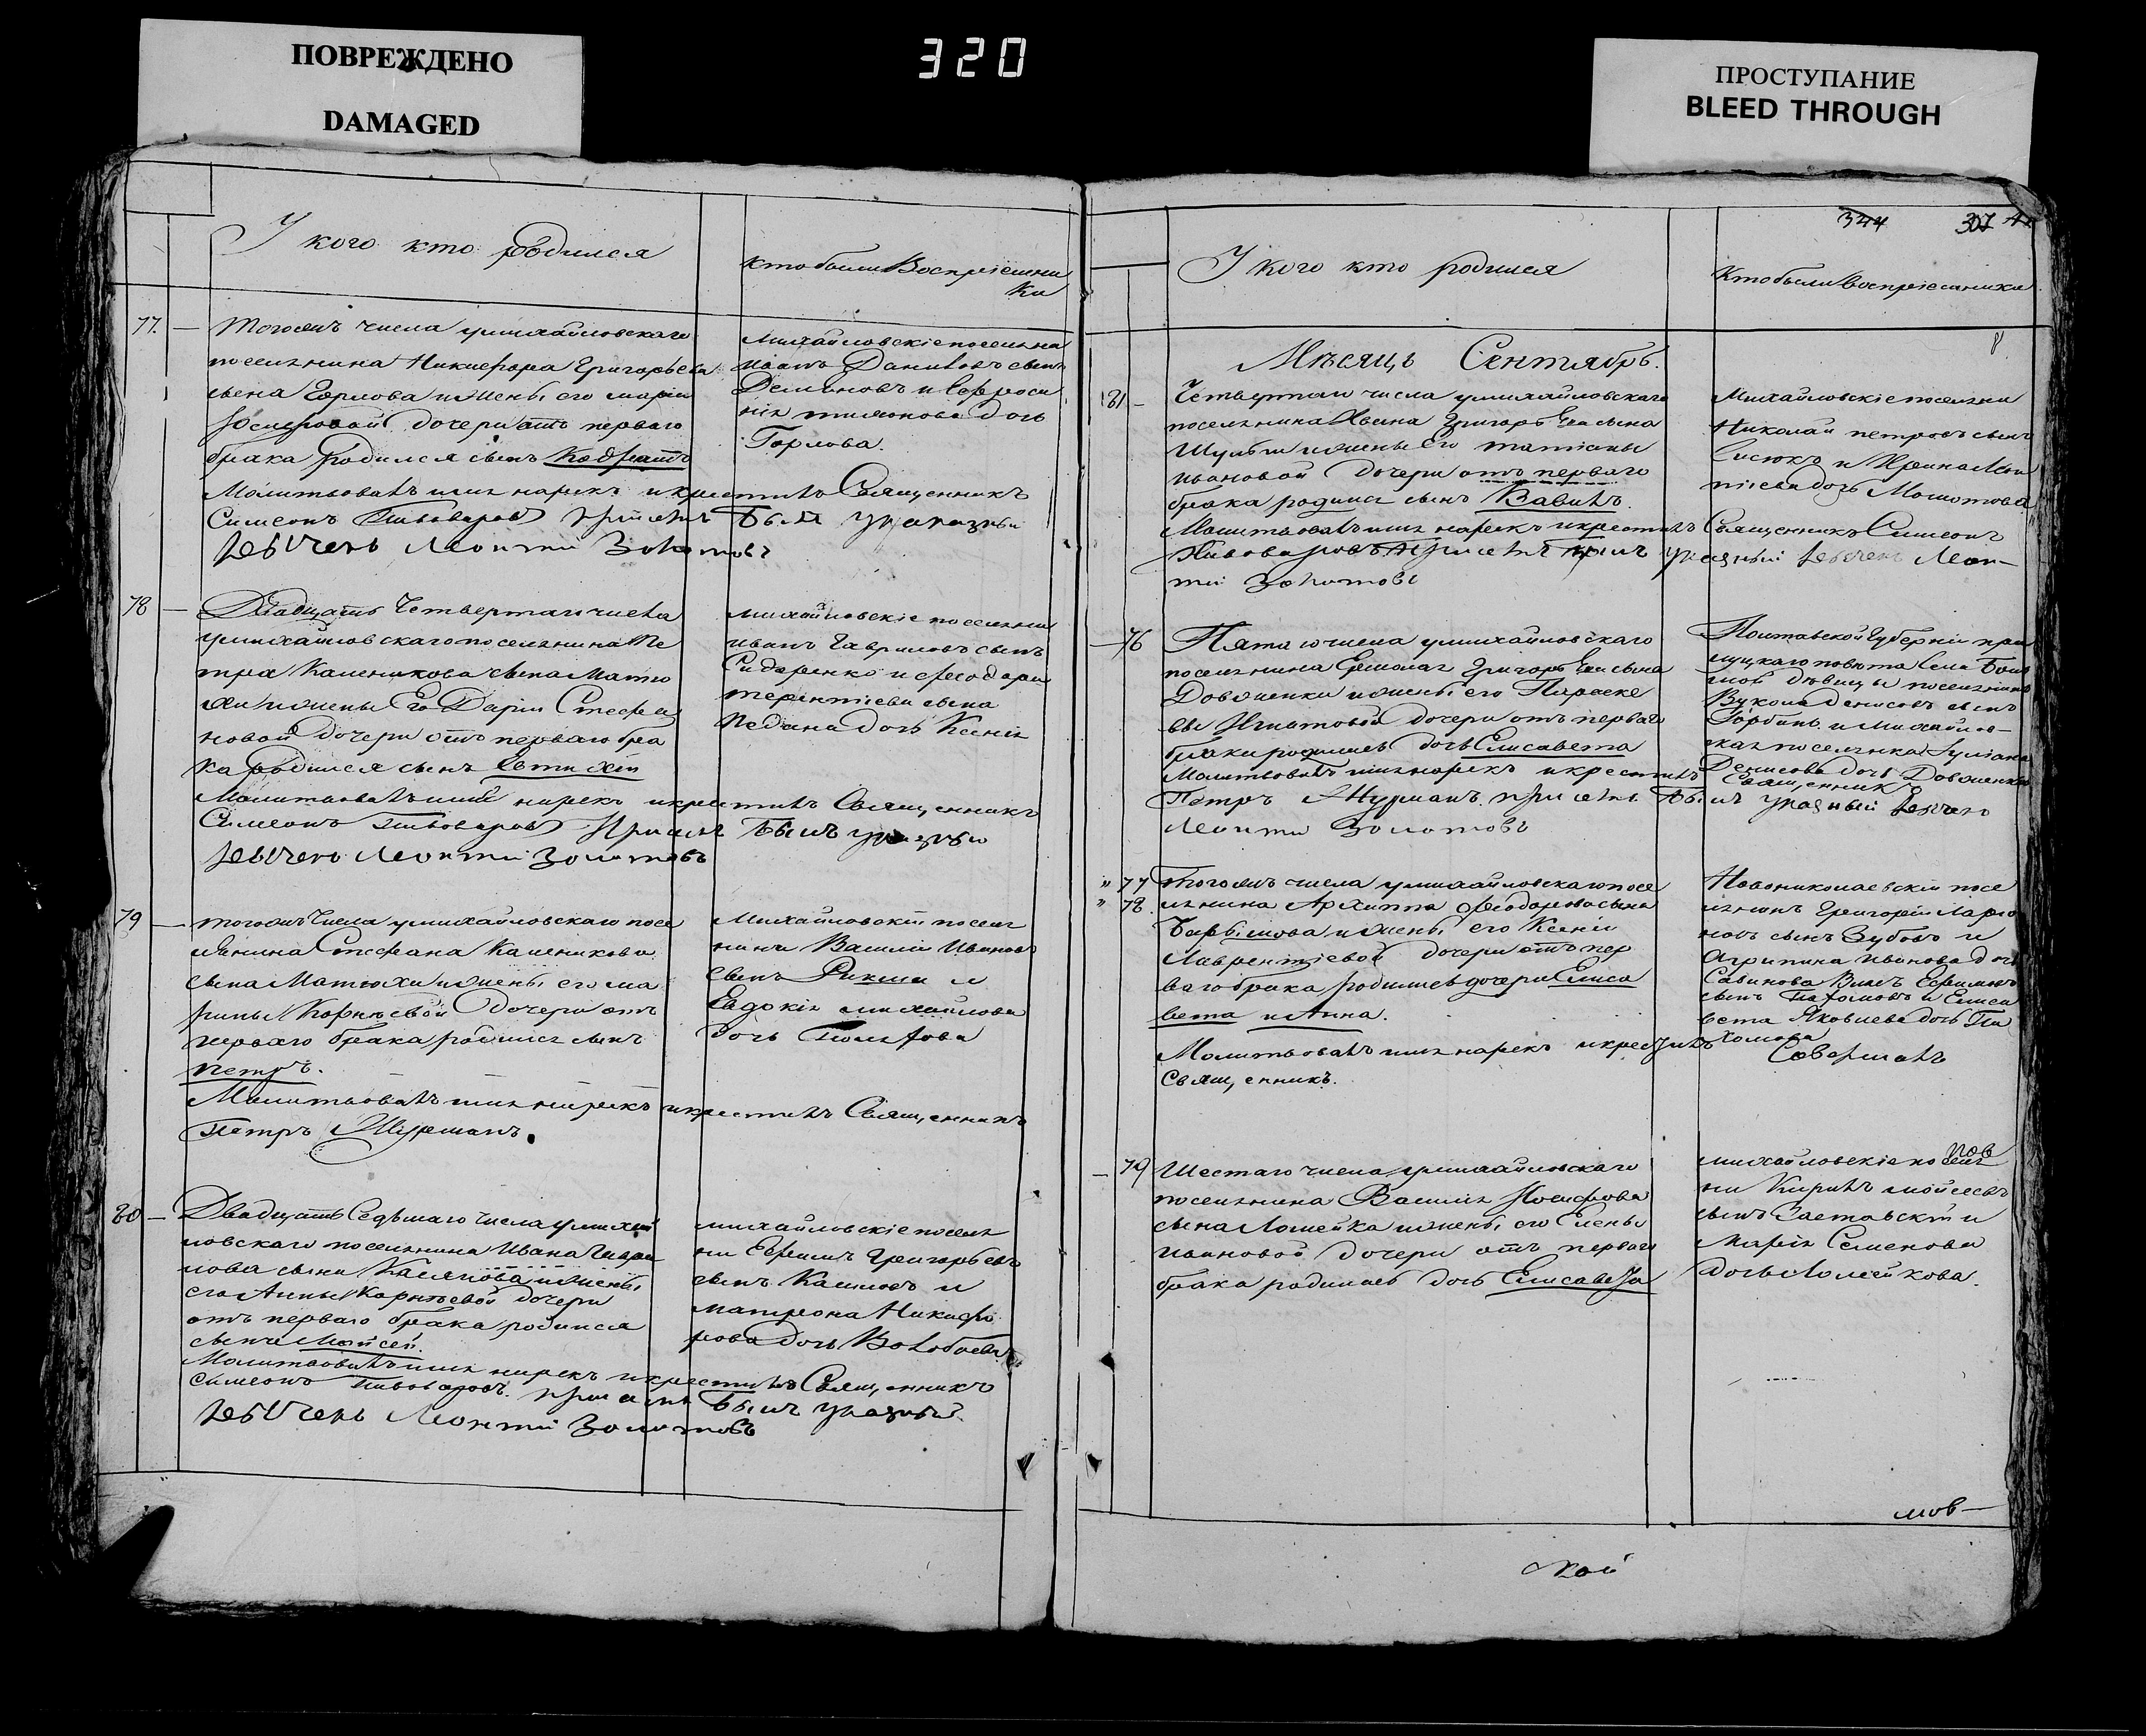 ПОВРЕЖДЕНО
DAMAGED
320
ПРОСТУПАНИЕ
BLEED THROUGH
У кого кто родился
Кто были Воспріемни
ки
77.
Тогожъ числа умихайловскаго
поселянина Никифора Григорьева
сына Горлова ижены его маріи
Іосифовой дочери отъ перваго
брака родился сынъ Кодратъ
Молитвовалъ имя нарекъ икрестилъ Священникъ
Симеонъ Пивоваровъ присемъ Былъ указный
дьячекъ Леонтій Золотовъ
Михайловскіе поселяна
Иванъ Даниловъ сынъ
Демяновъ и Евфроси
нія тимонова дочь
Горлова.
78
Двадцать Четвертаго числа
умихайловскаго поселянина Пе
тра Каленикова сына Матю
хи ижены Его Даріи Стефа
новой дочери отъ перваго бра
ка родился сынъ Евтихій
Молитвовалъ имя нарекъ икрестилъ Священникъ
Симеонъ Пивоваровъ Присемъ Былъ указный
дьячекъ Леонтій Золотовъ
михайловскіе поселяни
иванъ Гавриловъ сынъ
Сидоренко и феодора
терентіева сына
дочь Ксенія
79
тогожъ Числа умихайловскаго посе
лянина Стефана Каленикова
сына Матюхи ижены его ма
рины Корнѣевой дочери отъ
перваго брака родился сынъ
петръ.
Молитвовалъ имя нарекъ икрестилъ Священникъ
Петръ Шурманъ.
Михайловскій поселя
нинъ Василій Ивановъ
сынъ и
Евдокія михайлова
дочь
80
Двадцать Седьмаго числа умихай
ловскаго поселянина Ивана Гаври
лова сына Калянова ижены
его Анны Корнѣевой дочери
отъ перваго брака родился
сынъ Мойсей.
Молитвовалъ имя нарекъ икрестилъ Священникъ
Симеонъ Пивоваровъ. присемъ Былъ указный
дьячекъ Леонтій Золотовъ
михайловскіе поселя
ни Ефимъ Григорьевъ
сынъ Калиновъ и
матрона Никифо
рова дочь
344
307
У кого кто родился
Кто были Воспріемники
Мѣсяцъ Сентябрь.
81
Четвертаго числа умихайловскаго
поселянина Григорьева сына
Шульги ижены Его татіаны
ивановой дочери отъ перваго
брака родился сынъ Вавилъ.
Молитвовалъ имя нарекъ икрестилъ Священникъ Симеонъ
Пивоваровъ присемъ Былъ указный дьячекъ Леон-
тій Золотовъ
Михайловскіе поселяни
Николай петровъ сынъ
Лисюкъ и Ирина
дочь
76
Пятаго числа умихайловскаго
поселянина Ермолая Григорьева сына
Довженки ижены его Параске
вы Игнатовой дочери отъ перваго
брака родилась дочь Елисавета
Молитвовалъ имя нарекъ икрестилъ Священникъ
Петръ Шурманъ. присемъ Былъ указный дьячекъ
Леонтій Золотовъ
Полтавской Губерніи при
луцкаго повѣта Села Боль
шой дѣвицы поселянинъ
Вукола Денисовъ сынъ
Горбань и михайлов-
ская поселянка Іуліана
Денисова дочь Довженкова
77
78
тогожъ числа умихайловскаго посе
лянина Архиппа Феодорова сына
Барышова ижены его Ксеніи
Лаврентіевой дочери отъ пер
ваго брака родились дочери Елиса
вета и Анна.
Молитвовалъ имя нарекъ икрестилъ Совершалъ
Священникъ.
Новониколаевскій посе
лянинъ Григорій Ларіо
новъ сынъ Зубовъ и
Агрипина иванова дочь
Савинова Ефимовъ
сынъ Пахомовъ и Елиса
вета Яковлева дочь Па
хомова
79
Шестаго числа умихайловскаго
поселянина Василія Іосифова
сына Ломейка ижены его Елены
ивановой дочери отъ перваго
брака родилась дочь Елисавета
михайловскіе поселя
ни Кирилъ мойсеевъ
сынъ Заставскій и
Марія Семенова
дочь Ломейкова.
мов—
кой